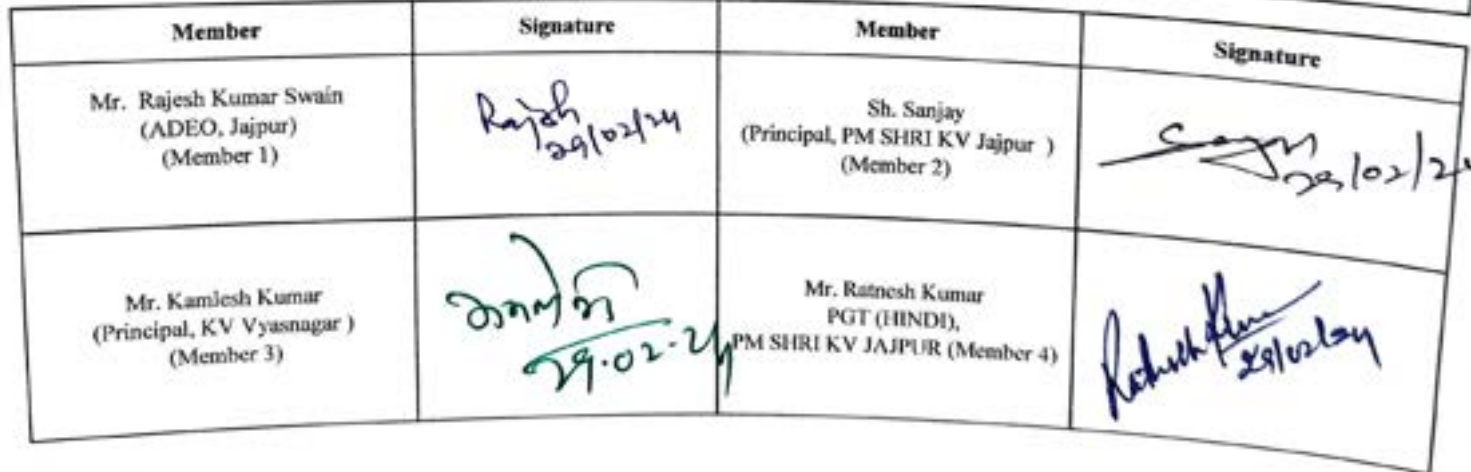 Member Signature Member Signature
Mr. Rajesh Kumar Swain
(ADEO, Jajpur)
(Member 1)
Rajesh
29/02/24
Sh. Sanjay
(Principal, PM SHRI KV Jajpur )
(Member 2)
29/02/24
Mr. Kamlesh Kumar
(Principal, KV Vyasnagar )
(Member 3)
कमलेश
29.02.24
Mr. Ratnesh Kumar
PGT (HINDI),
PM SHRI KV JAJPUR (Member 4)
Ratnesh Kumar
29/02/24